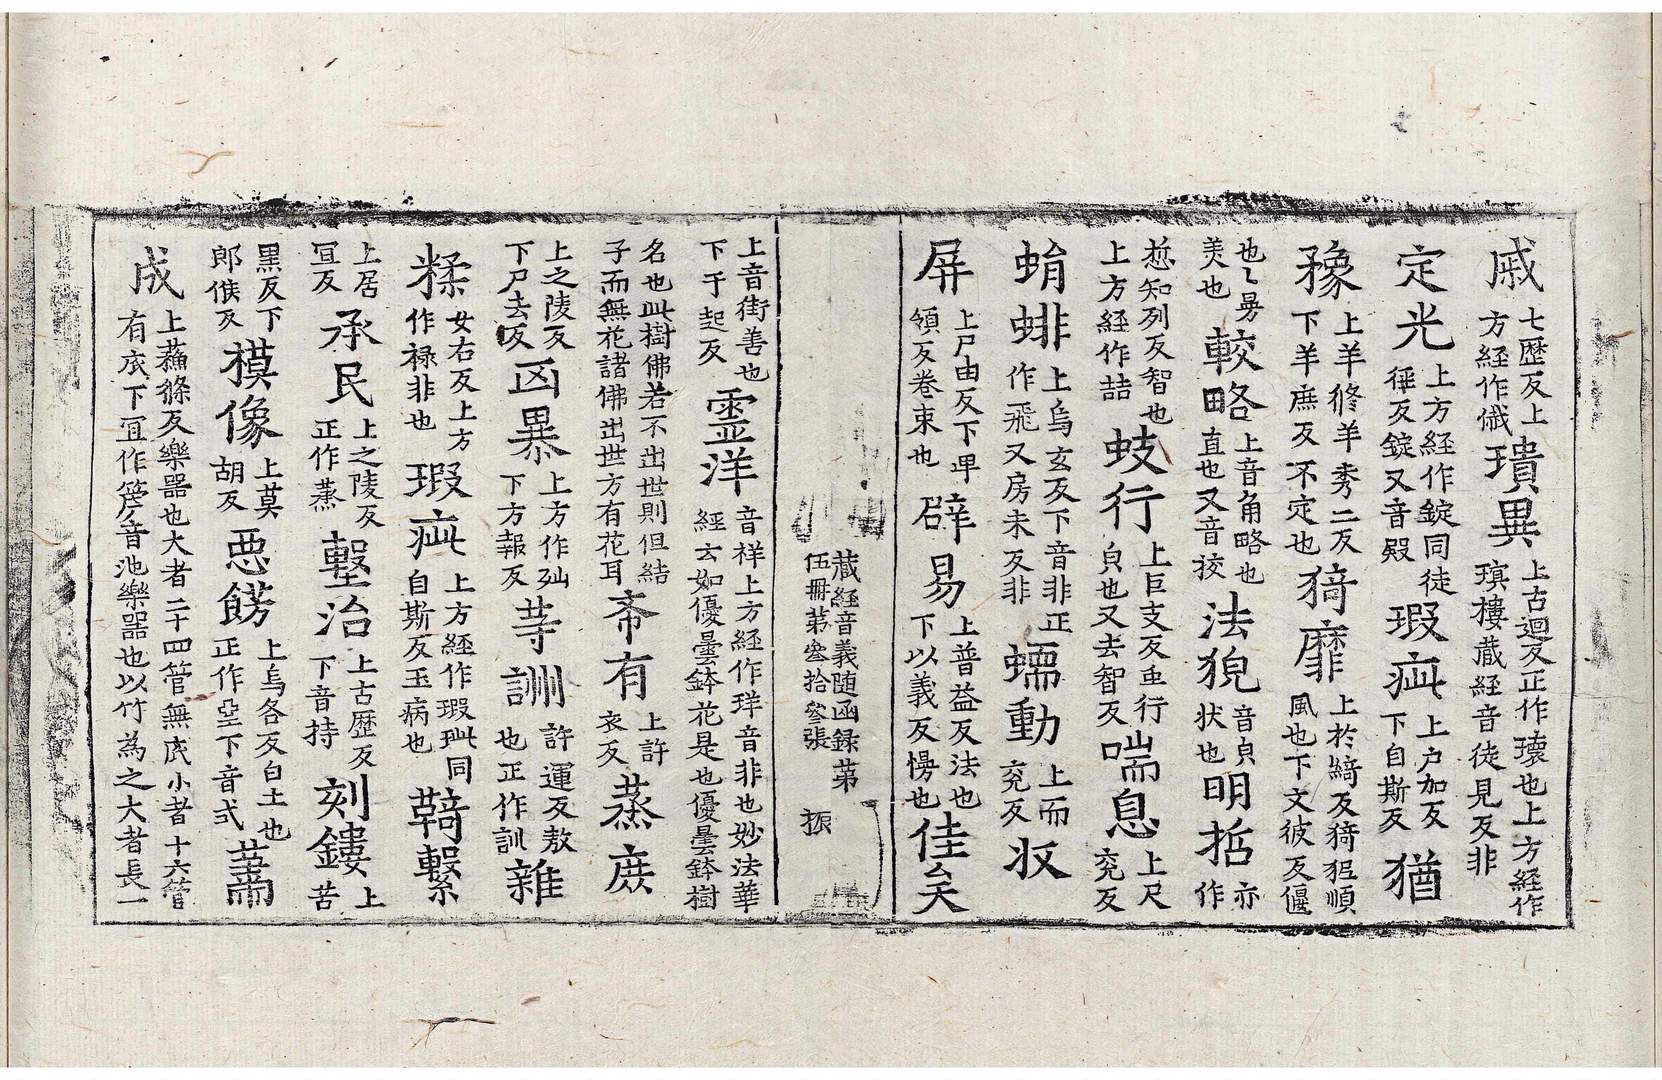 戚七歷反上方經作儎瓆異上古迴反正作瓌也上方經作瑸樓藏經音徒見反非
定光上方經作錠同徒徑反錠又音殿瑕疵上户加反下自斯反猶
豫上羊修羊秀二反下羊庶反不定也猗靡上於綺反猗㹫順風也下文彼反偃
也〻㫰美也較略上音角略也直也又音挍法猊音皃狀也明哲亦作
悊知列反智也上方經作詰蚑行上巨支反虫行皃也又去智反喘息上尺兖反
蜎蜚上烏玄反下音非正作飛又房未反非蠕動上而兖反收
屏上户由反下𤰞領反卷束也辟易上普益反法也下以義反慢也佳矣
藏經音義随函録苐伍冊苐叁拾叄張 振
上音街善也下于起反靈洋音祥上方經作珜音非也妙法華經云如優曇鉢花是也優曇鉢樹
名也此樹佛若不出世則但結子而無花諸佛出世方有花耳希有上許衣反蒸庶
上之陵反下尸去反凶暴上方作𡉏下方報反䓁訓許運反教也正作訓雜
糅女右反上方作䘵非也瑕疵上方經作瑕玼同自斯反玉病也鞿繫
上居冝反承民上之陵反正作蒸墼治上古歷反下音持刻鏤上苦
黒反下郎侯反摸像上莫胡反惡餝上烏各反白土也正作堊下音式簫
成上蘓條反樂器也大者二十四管無底小者十六管有底下冝作箎音池樂器也以竹為之大者長一